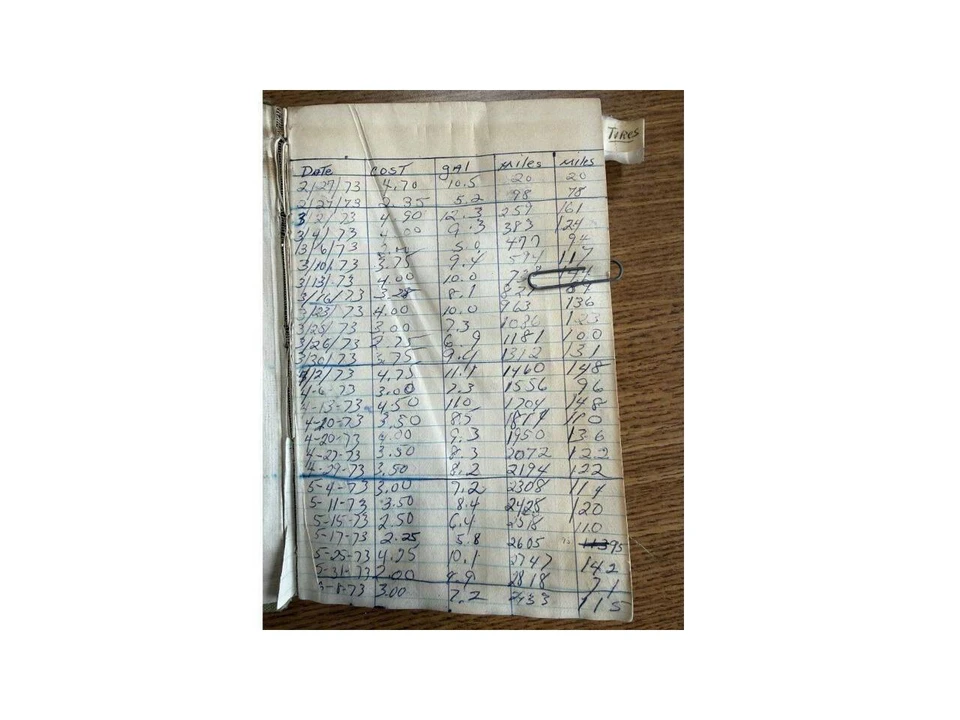 TIRES
DATE COST gAl Miles Miles
2/27/73 4.70 10.5 20 20
2/27/73 2.35 5.2 98 78
3/2/73 4.90 12.3 259 161
3/4/73 9.3 383 124
3/6/73 5.0 477 94
3/10/73 3.75 9.4 594 117
3/13/73 4.00 10.0
3/16/73 3.28 8.1 827
3/23/73 4.00 10.0 963 136
3/25/73 3.00 7.3 123
3/26/73 2.75 6.9 1181 100
3/30/73 3.75 9.1 1312 131
4/2/73 4.75 11.1 1460 148
4-6-73 3.00 7.3 1556 96
4-13-73 4.50 11.0 1704 148
4-20-73 3.50 8.5 1814 110
4-20-73 4.00 9.3 1950 136
4-27-73 3.50 8.3 2072 122
4-29-73 3.50 8.2 2194 122
5-4-73 3.00 7.2 2308 114
5-11-73 3.50 8.4 2428 120
5-15-73 2.50 6.4 110
5-17-73 2.25 5.8 2605 95
5-25-73 4.25 10.1 2747 142
5-31-73 2.00 4.9 2818 71
3.00 7.2 115